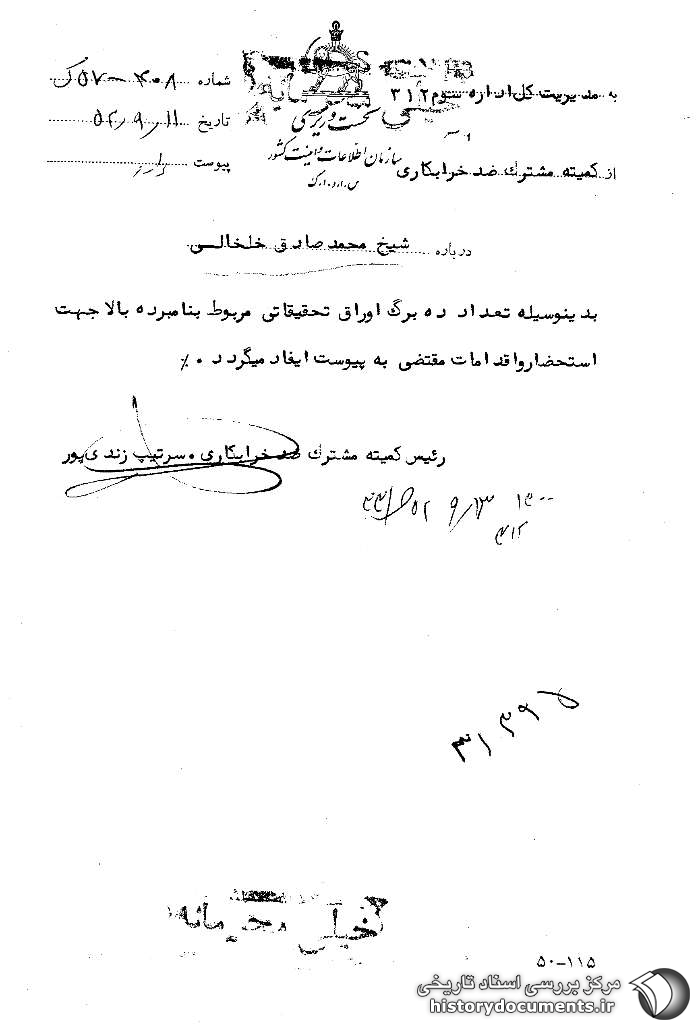 به مدیریت کل اداره سوم ۳۱۲
شماره ۴۰۸-۵۷ ک
نخست وزیری
تاریخ ۵۲/۹/۱۱
سازمان اطلاعات و امنیت کشور
از کمیته مشترك ضد خرابکاری
پیوست دارد
س.ا.و.ا.ک
درباره شیخ محمد صادق خلخالی
بدینوسیله تعداد ده برگ اوراق تحقیقاتی مربوط بنامبرده بالا جهت
استحضار و اقدامات مقتضی به پیوست ایفاد میگردد ٠٪
رئیس کمیته مشترك ضد خرابکاری . سرتیپ زندی پور
۵۲ ۹/۱۳
۳۱۲
خیلی محرمانه
۵۰-۱۱۵
مرکز بررسی اسناد تاریخی
historydocuments.ir